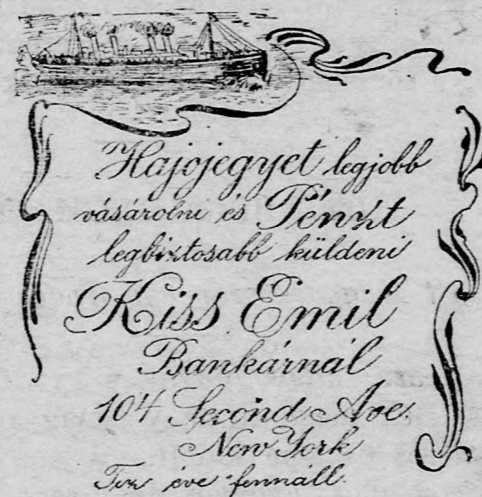 Hajójegyet legjobb
vásárolni és Pénzt
legbiztosabb küldeni
Kiss Emil
Bankárnál
104 Second Ave.
New York
Tíz éve fennáll.